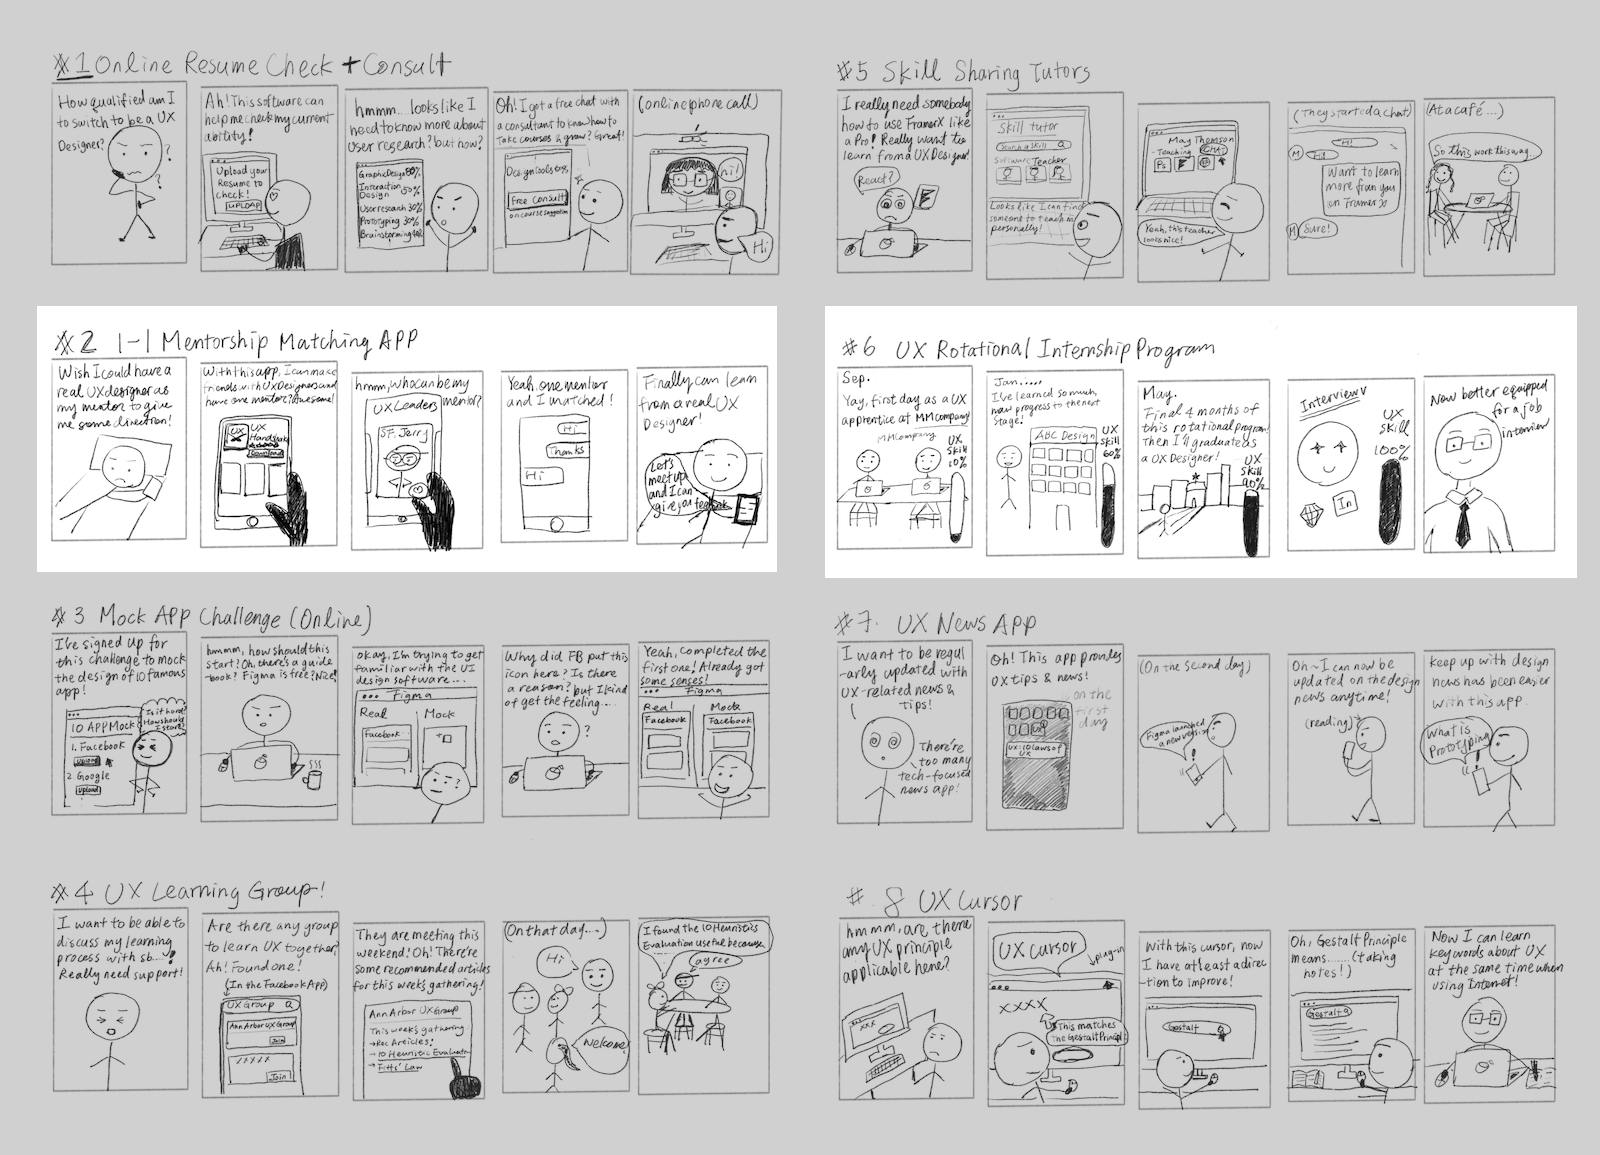 #1 Online Resume Check + Consult
How qualified am I
to switch to be a UX
Designer?
?
?
Ah! This software can
help me check my current
ability!
Upload your
Resume to
check!
UPLOAD
hmmm... looks like I
need to know more about
User research? but how?
Graphic Design 80%
Interaction
Design 50%
User research 30%
Prototyping 30%
Brainstorming
Oh! I got a free chat with
a consultant to know how to
take courses & grow? Great!
Design tools 60%
Free Consult
on course suggestion
(online/phone call)
hi!
Hi
#2 1-1 Mentorship Matching APP
Wish I could have a
real UX designer as
my mentor to give
me some direction!
With this app, I can make
friends with UX Designers and
have one mentor? Awesome!
UX
UX
Handshake
Download
hmm, who can be my
mentor?
UX Leaders
SF. Jerry
Yeah, one mentor
and I matched!
Hi
Thanks
Hi
Finally can learn
from a real UX
Designer!
Let's
meet up
and I can
give you feedback
#3 Mock APP Challenge (Online)
I've signed up for
this challenge to mock
the design of 10 famous
app!
Is it hard?
How should
I start?
10 APP Mock
1. Facebook
Upload
2 Google
Upload
hmmm, how should this
start? Oh, there's a guide
-book? Figma is free? Nice!
okay, I'm trying to get
familiar with the UI
design software....
Figma
Real
Mock
Facebook
Why did FB put this
icon here? Is there
a reason? but I kind
of get the feeling....
?
Yeah, completed the
first one! Already got
some senses!
Figma
Real
Mock
Facebook
Facebook
#4 UX Learning Group!
I want to be able to
discuss my learning
process with sb...!
Really need support!
Are there any group
to learn UX together?
Ah! Found one!
(In the Facebook App)
UX Group
Ann Arbor UX Group
Join
XXXXX
Join
They are meeting this
weekend! Oh! There're
some recommended articles
for this week's gathering!
Ann Arbor UX Group
This week's gathering
→ Rec Articles!
→ 10 Heuristic Evaluation
→ Fitts' Law
(On that day...)
Hi
Welcome!
I found the 10 Heuristics
Evaluation useful because...
I agree
#5 Skill Sharing Tutors
I really need somebody
how to use FramerX like
a Pro! Really want to
learn from a UX Designer!
React?
Skill tutor
Search a skill
Software Teacher
Looks like I can find
someone to teach me
personally!
May Thomson
-Teaching
CHAT
Ps
Yeah, this teacher
looks nice!
(They started a chat)
Hi!
M
Hi!
Want to learn
more from you
on Framer X
M
Sure!
(At a café...)
So this work this way...
#6 UX Rotational Internship Program
Sep.
Yay, first day as a UX
apprentice at MM company!
MM Company
UX
skill
10%
Jan.....
I've learned so much,
now progress to the next
stage!
ABC Design
UX
skill
60%
May.
Final 4 months of
this rotational program!
Then I'll graduate as
a UX Designer!
UX
skill
90%
Interview
UX
skill
100%
In
Now better equipped
for a job
interview
#7. UX News APP
I want to be regul
-arly updated with
UX-related news &
tips!
There're
too many
tech-focused
news app!
Oh! This app provides
UX tips & news!
on the
first
day
UX: 10 laws of
UX
(On the second day)
Figma launched
a new version
Oh~ I can now be
updated on the design
news anytime!
(reading)
keep up with design
news has been easier
with this app.
What is
Prototyping
#. 8 UX Cursor
hmmm, are there
any UX principle
applicable here?
XXX
UX cursor
plug-in
XXXX
This matches
The Gestalt Principle
With this cursor, now
I have at least a direc
-tion to improve!
Gestalt
Oh, Gestalt Principle
means...... (taking
notes!)
Gestalt
Now I can learn
key words about UX
at the same time when
using Internet!